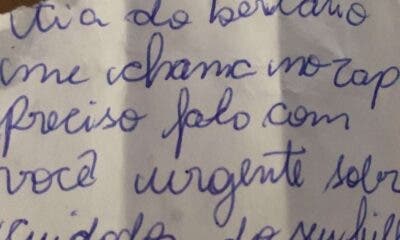 tia do berçario
me chama no zap
preciso falo com
você urgente sobr
cuidado do seu fill